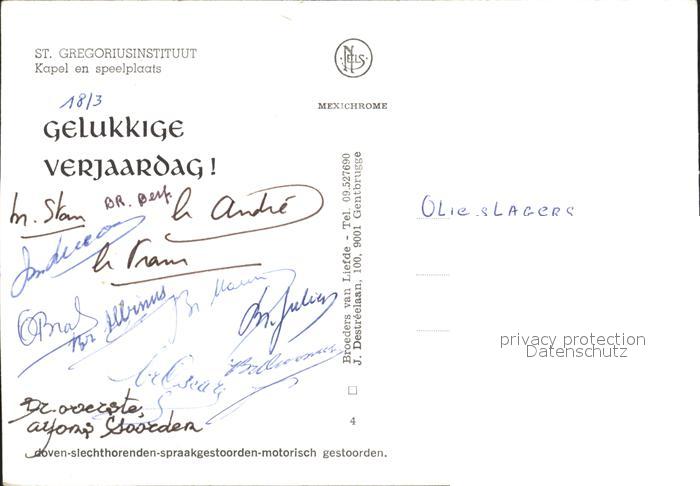 ST. GREGORIUSINSTITUUT
Kapel en speelplaats
NELS
MEXICHROME
18/3
GELUKKIGE
VERJAARDAG!
br. Stan
BR. Bert.
br André
br Frans
Br Albinus
Br. Julien
br Oscar
Br. overste,
Alfons
doven-slechthorenden-spraakgestoorden-motorisch gestoorden.
Broeders van Liefde - Tel. 09.527690
J. Destréelaan, 100, 9001 Gentbrugge
4
OLieSLAGERS
privacy protection
Datenschutz